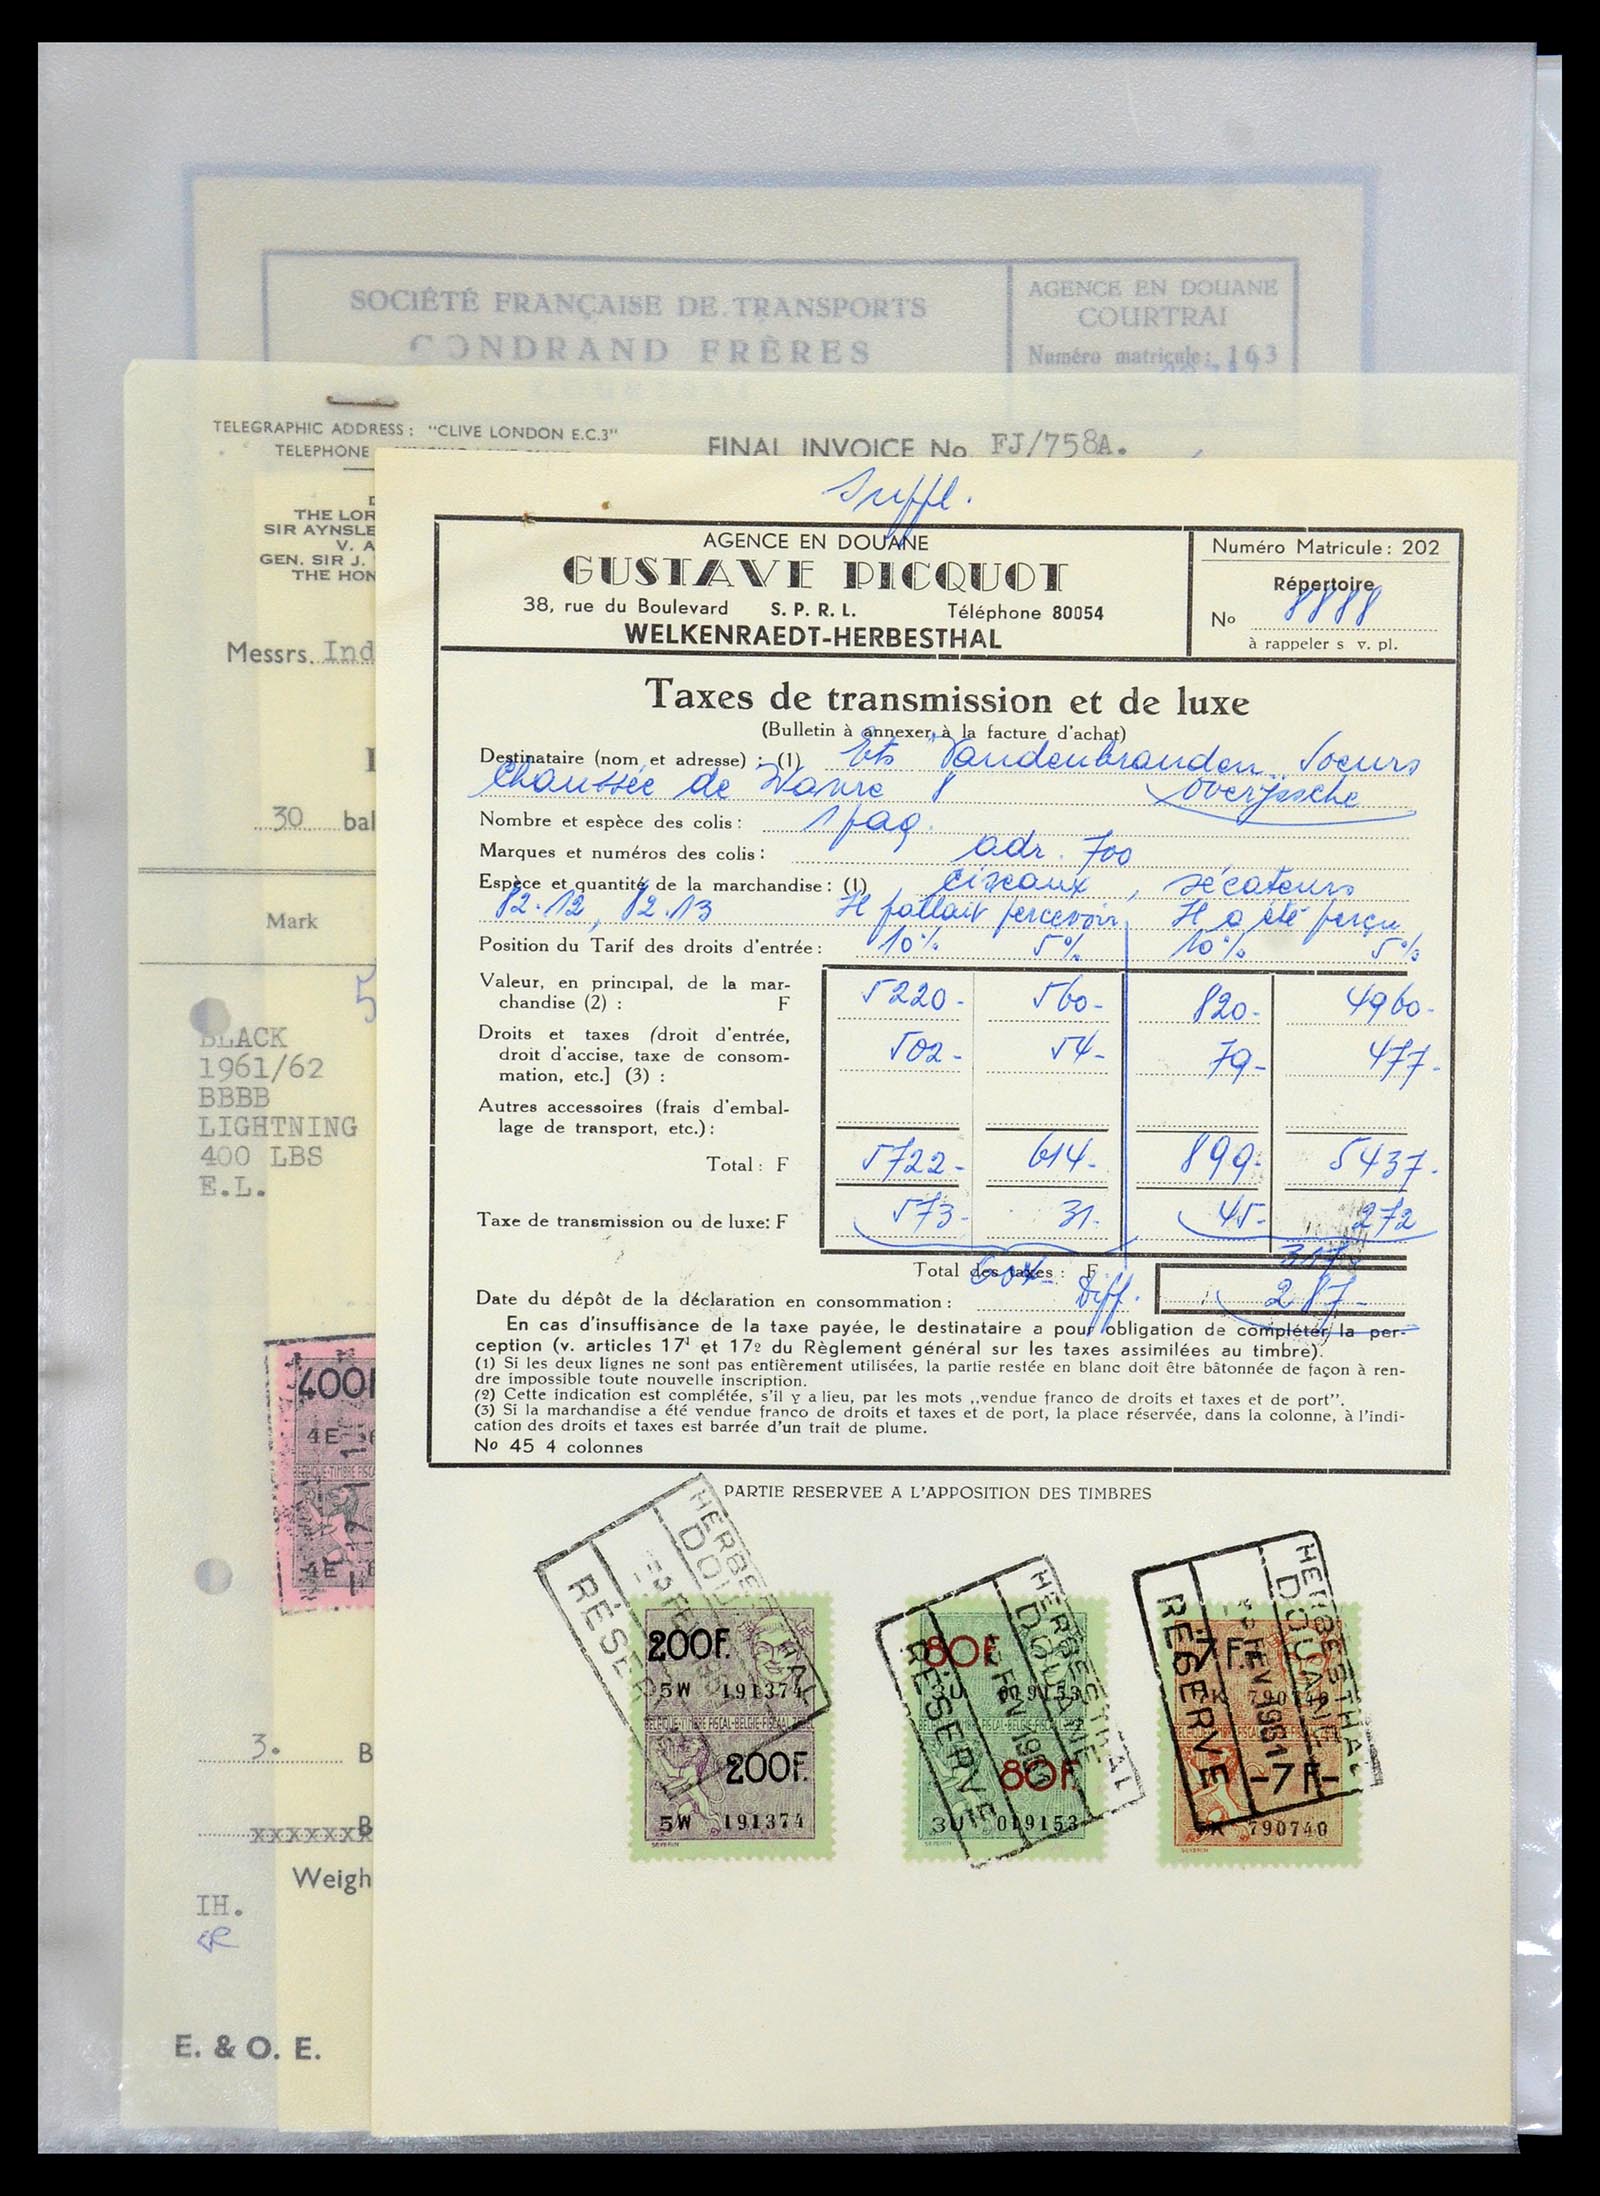 SOCIÉTÉ FRANÇAISE DE TRANSPORTS
GONDRAND FRÈRES
AGENCE EN DOUANE
COURTRAI
Numéro matricule: 163
TELEGRAPHIC ADDRESS: "CLIVE LONDON E.C.3"
TELEPHONE
FINAL INVOICE No. FJ/758A.
THE LOR
SIR AYNSLE
V. A
GEN. SIR J.
THE HON
Messrs. Ind
30 bal
Mark
BLACK
1961/62
BBBB
LIGHTNING
400 LBS
E.L.
400F
4E
4E
3. B
xxxxxxx
Weigh
IH.
E. & O. E.
Suppl.
AGENCE EN DOUANE
GUSTAVE PICQUOT
38, rue du Boulevard S. P. R. L. Téléphone 80054
WELKENRAEDT-HERBESTHAL
Numéro Matricule: 202
Répertoire
No 8888
à rappeler s v. pl.
Taxes de transmission et de luxe
(Bulletin à annexer à la facture d'achat)
Destinataire (nom et adresse) : (1) Ets Vandenbranden Soeurs
Chaussée de Wavre 8 Overijssche
Nombre et espèce des colis: 1 paq.
Marques et numéros des colis: adr. 700
Espèce et quantité de la marchandise: (1) ciseaux, sécateurs
82.12, 82.13 Il fallait percevoir Il a été perçu
Position du Tarif des droits d'entrée: 10% 5% 10% 5%
Valeur, en principal, de la mar-
chandise (2) : F 5220.- 560- 820.- 4960.-
Droits et taxes (droit d'entrée,
droit d'accise, taxe de consom-
mation, etc.] (3) : 502- 54- 79- 477-
Autres accessoires (frais d'embal-
lage de transport, etc.):
Total: F 5722- 614- 899- 5437-
Taxe de transmission ou de luxe: F 573- 31- 45- 272
Total des taxes: F 604- 317
Date du dépôt de la déclaration en consommation: Diff. 287-
En cas d'insuffisance de la taxe payée, le destinataire a pour obligation de compléter la per-
ception (v. articles 17¹ et 17² du Règlement général sur les taxes assimilées au timbre).
(1) Si les deux lignes ne sont pas entièrement utilisées, la partie restée en blanc doit être bâtonnée de façon à ren-
dre impossible toute nouvelle inscription.
(2) Cette indication est complétée, s'il y a lieu, par les mots ,,vendue franco de droits et taxes et de port".
(3) Si la marchandise a été vendue franco de droits et taxes et de port, la place réservée, dans la colonne, à l'indi-
cation des droits et taxes est barrée d'un trait de plume.
No 45 4 colonnes
PARTIE RESERVEE A L'APPOSITION DES TIMBRES
HERBESTHAL
DOUANE
RÉSERVE
200F.
5W 191374
BELGIQUE-TIMBRE FISCAL-BELGIE-FISCALE ZEGEL
200F.
5W 191374
HERBESTHAL
DOUANE
RÉSERVE
80F.
3U 019153
80F.
3U 019153
HERBESTHAL
DOUANE
FEV 1961
RÉSERVE
7 F.
790740
-7 F-
790740